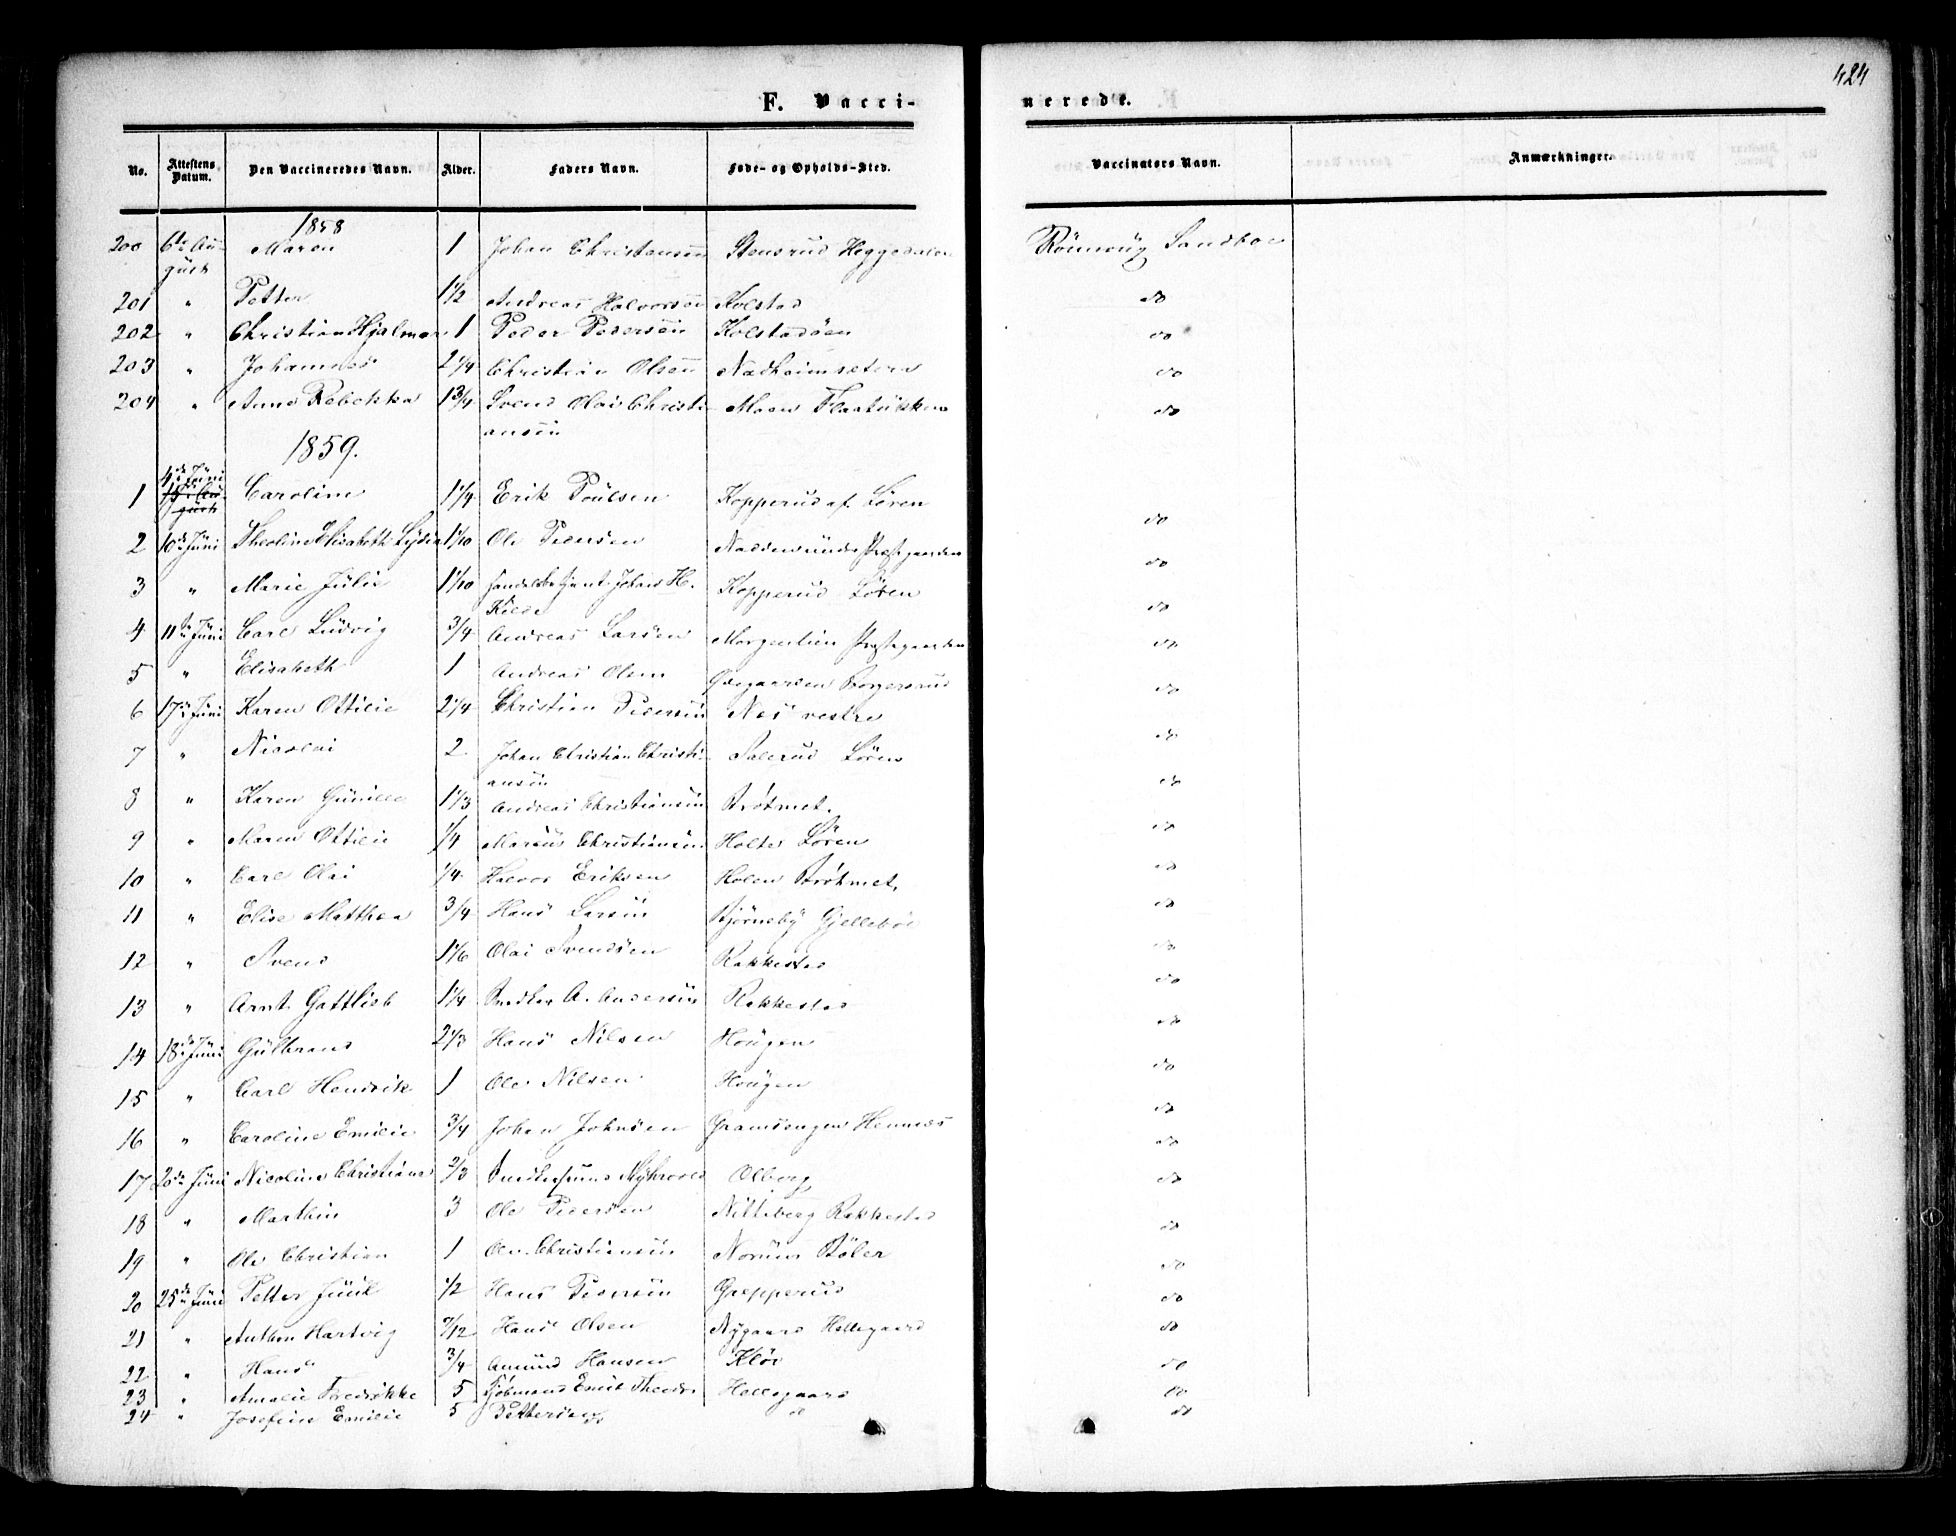 424
F. Vacci-
nerede.
No. Attestens Datum. Den Vaccineredes Navn. Alder. Faders Navn. Føde- og Opholds-Sted. Vaccinators Navn. Anmærkninger.
1858
200 6te Au- Maren 1 Johan Christensen Stensrud Heggedalen Sandboe
gust
201 " Petter 1 1/2 Andreas Halvorsen Kolstad do
202 " Christian Hjalmar 1 Peder Pedersen Kolstadøen do
203 " Johannes 2 1/4 Christian Olsen do
204 " Anne Rebekka 1 3/4 Svend Olai Christi- Moen do
ansen
1859.
4de Juni
1 Caroline 1 1/4 Erik Poulsen Kopperud af Løren do
gust
2 10de Juni Theoline Elisabeth Lydia 1 1/10 Ole Pedersen Præstegaarden do
3 " Marie Julie 1 1/10 Johan H. Kopperud Løren do
Kilde
4 11te Juni Carl Ludvig 3/4 Andreas Larsen Morgentien Præstegaarden do
5 " Elisabeth 1 Andreas Olsen Ødegaarden Borgersrud do
6 17de Juni Karen Ottilie 2 1/4 Christian Pedersen Næs vestre do
7 " Nicolai 2 Johan Christian Christi- Løren do
ansen
8 " Karen Gunille 1 1/3 Andreas Christiansen Brøtmet. do
9 " Maren Ottilie 1/4 Marius Christiansen Holter Løren do
10 " Carl Olai 1/4 Halvor Eriksen Holen Brøtmet. do
11 " Elise Matthea 3/4 Hans Larsen Bjørneby Gjellebøe do
12 " Svend 1 1/6 Olai Svendsen Rakkestad do
13 " Arnt Gottlieb 1 1/4 Snedker A. Andersen Rakkestad do
14 18de Juni Gulbrand 2 1/3 Hans Nilsen Hougen do
15 " Carl Hendrik 1 Ole Nilsen Hougen do
16 " Caroline Emilie 3/4 Johan Johnsen Gramsengen Hennæs do
17 20de Juni Nicoline Christiane 2/3 Myhrvold Olberg do
18 " Marthin 3 Ole Pedersen Nitteberg Rakkestad do
19 " Ole Christian 1 Ole Christiansen Norum Bøler do
20 25de Juni Petter Juul 1/2 Hans Pedersen Grepperud do
21 " Anthon Hartvig 7/12 Hans Olsen Nygaard Hellegaard do
22 " Hans 3/4 Amund Hansen Kløv do
23 " Amalie Fredrikke 5 Kjøbmand Emil Theodor Hellegaard do
24 " Josefine Emilie 5 Pettersen do do